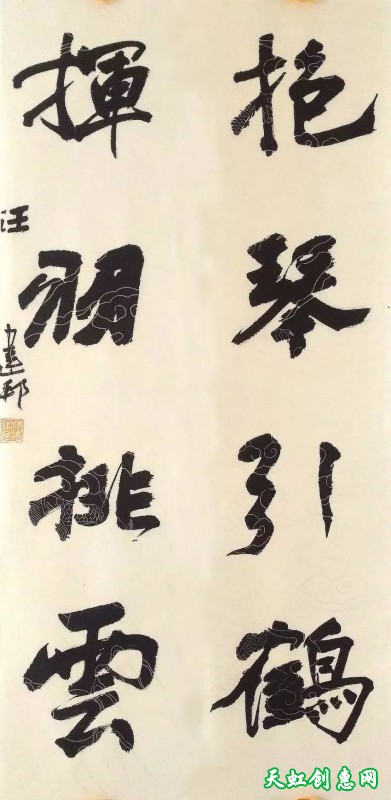 抱琴引鶴
揮羽挑雲
汪建邨
天虹创惠网